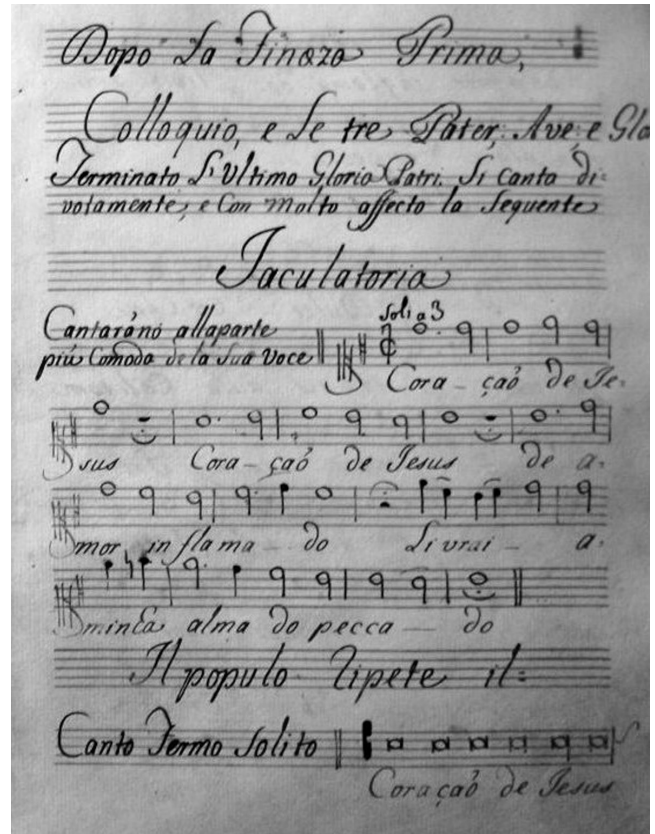 Dopo La Finaza Prima,
Colloquio, e Le tre Pater, Ave, e Glo
Terminato L'Ultimo Gloria Patri. Si Canta di:
votamente, e Con molto affecto la Sequente
Jaculatoria
Soli a 3
Cantaráno allaparte
piú Comoda de la Sua Voce
Cora - çaõ de Je-
sus Cora - çaõ de Jesus de a-
mor in flama - do Livrai - a-
minha alma do pecca - do
Il populo Ripete il:
Canto Fermo Solito
Coraçaõ de Jesus